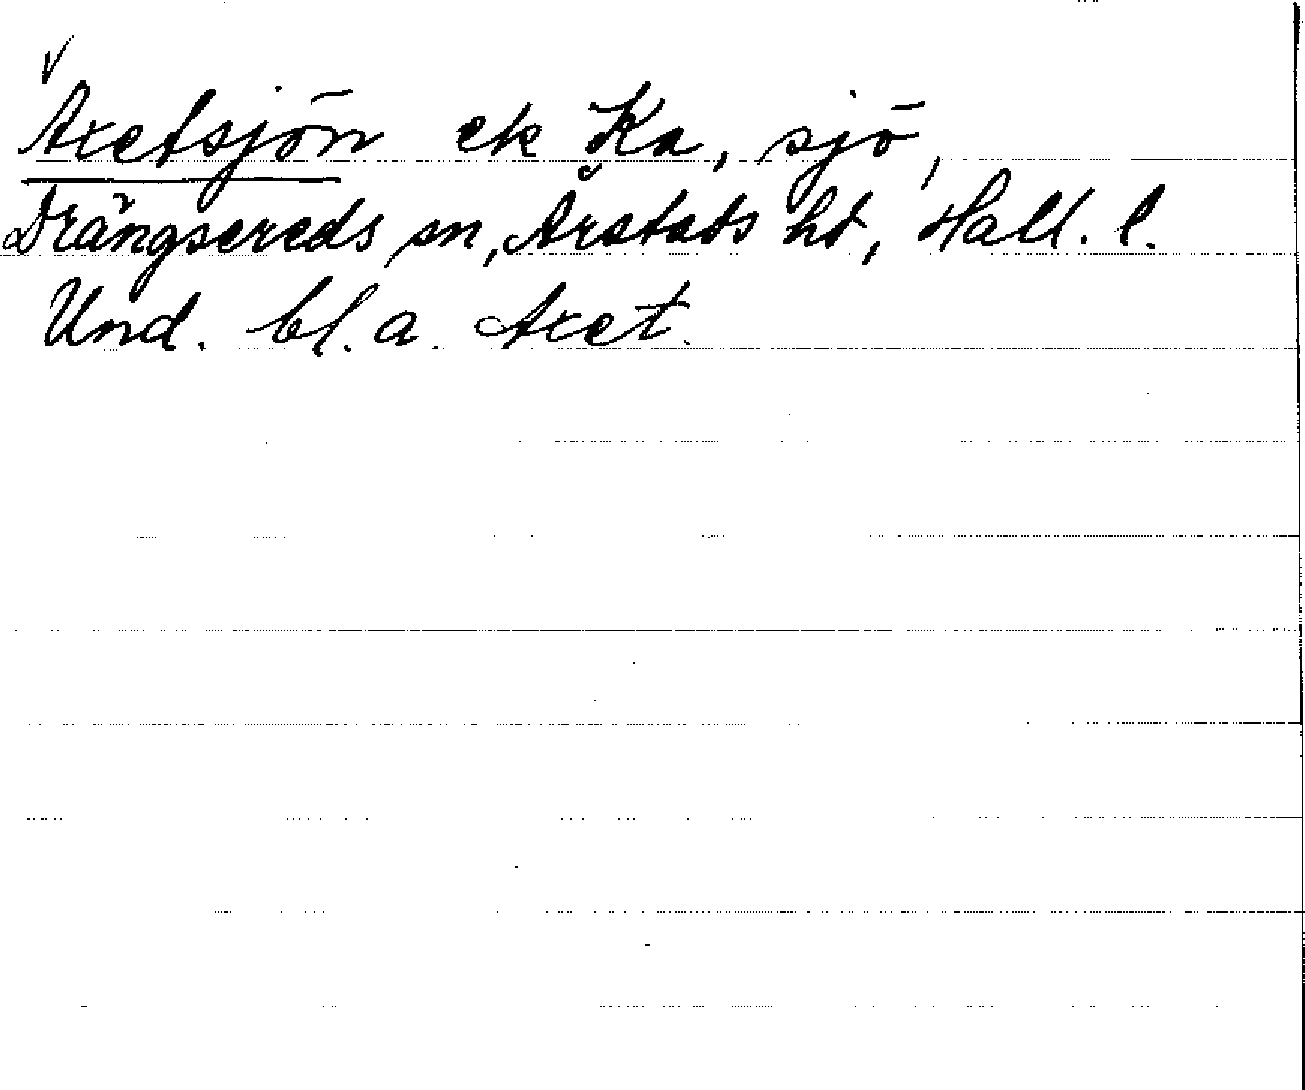 √
Axetsjön ek Ka, sjö,
Drängsereds sn, Årstads hd, Hall. l.
Und. bl. a. Axet.